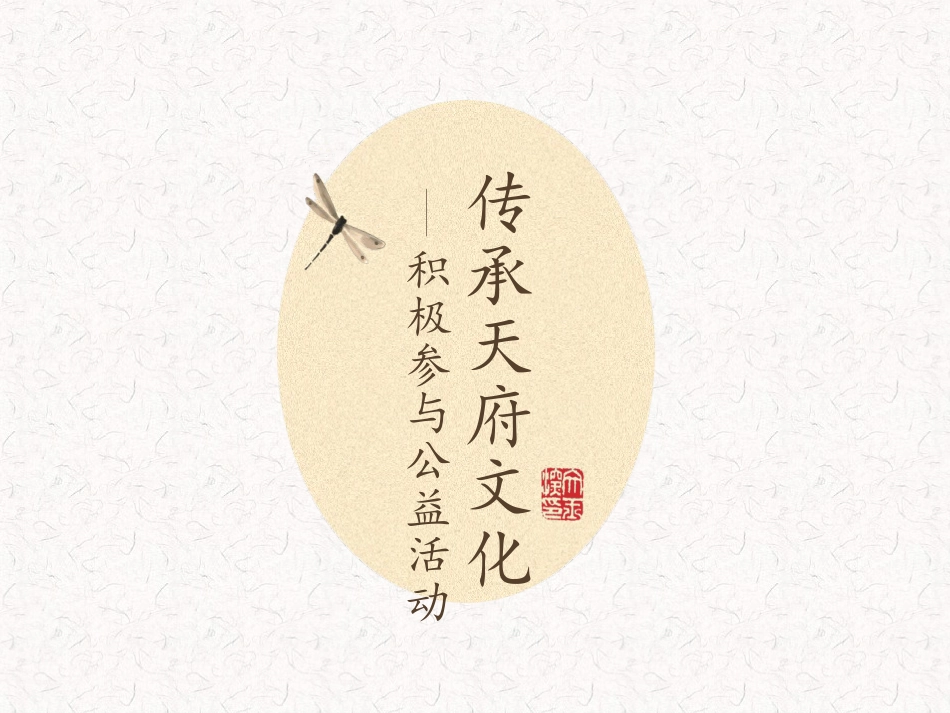 传承天府文化
—积极参与公益活动